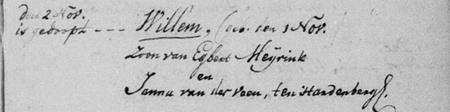 den 2 Nov.
is gedoopt --- Willem, geb. den 1 Nov.
Zoon van Egbert Meyrink
en
Janna van der Veen, ten Hardenberg.